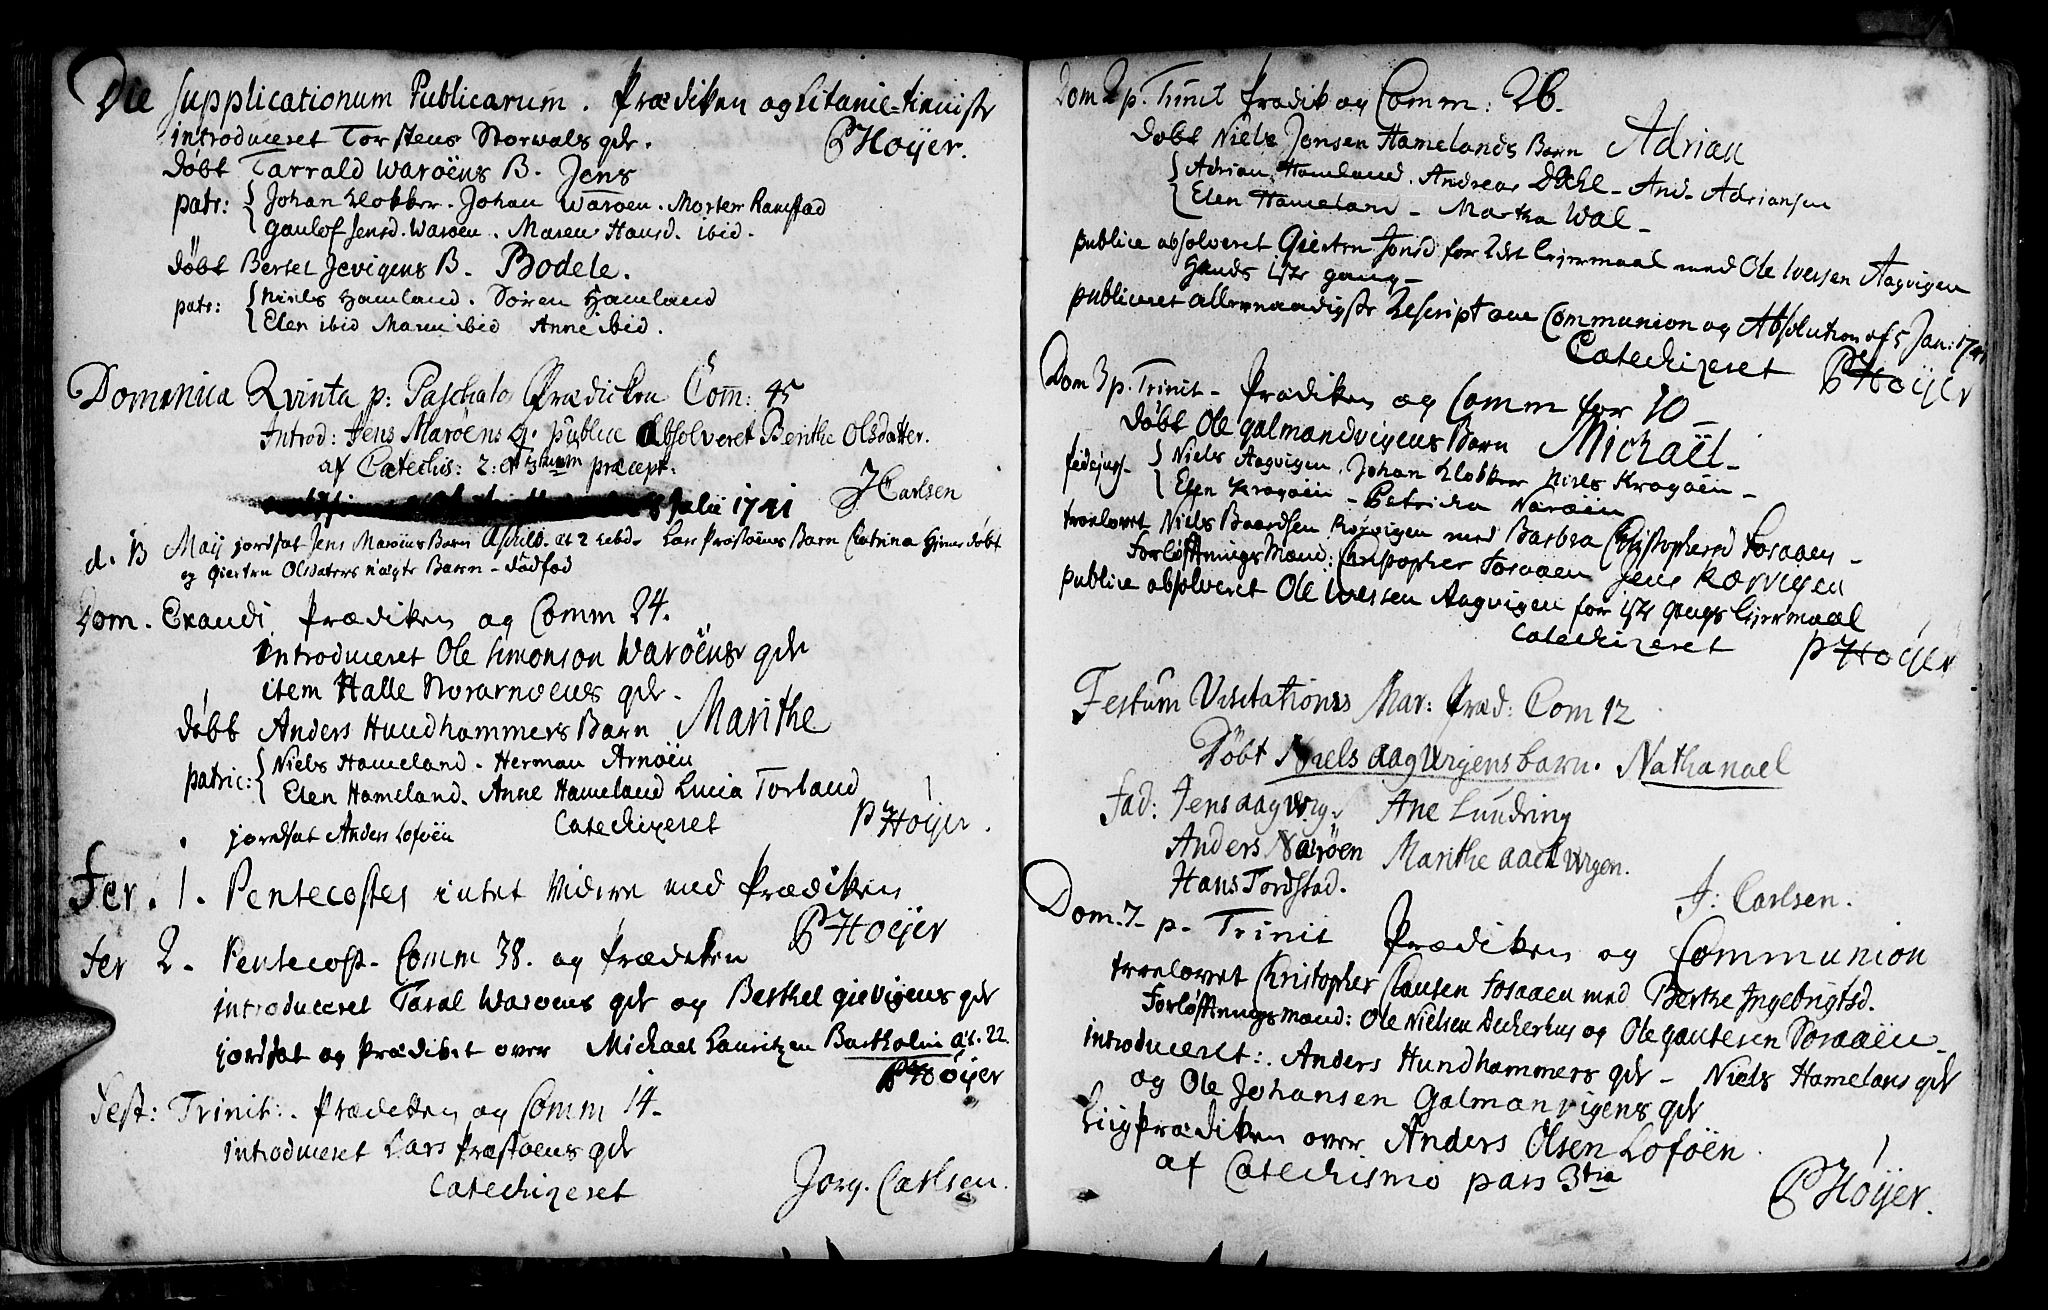 Die Supplicationum Publicarum. Prædiken og Litanie-tieniste
introduceret Torstens Norwals qdr. PHøyer.
Døbt Tarrald Warøens B. Jens
patr: Johan Klokker. Johan Warøen. Morten Ramstad
Gunlof Jensd. Warøen. Maren Hansd. ibid.
Døbt Bertel Jevigens B. Bodele.
patr: Niels Hameland. Sören Hameland
Elen ibid Maren ibid Anne ibid.
Dominica Qvinta p: Paschatos Prædicken Com: 45
Introd: Jens Marøens q. publice absolveret Berithe Olsdatter.
af Catechis: 2: et 3tium præcept.
Julii 1741 J Carlsen
d. 13 Maij jordsat Jens Marøens Barn æt 2 hebd. Lars Præstøens Barn Catrina hiemedøbt
og Giertru Olsdaters uægte Barn - dødfød
Dom. Exaudi Prædiken og Comm 24.
introduceret Ole Simonson Warøens qdr
item Halle Norarnøens qdr.
Døbt Anders Hundhammers Barn Marithe
patric: Niels Hameland. Herman Arnøen
Elen Hameland. Anne Hameland Lucia Torland
jordsat Anders Loføen Catechizeret PHøyer.
Fer. 1. Pentecostes intet videre med Prædiken
PHøyer
Fer 2. Pentecost. Comm 38. og Prædiken
introduceret Taral Warøens qdr og Berthel gievigens qdr
jordsat og Prædiket over Michael Lauritzen Bartholin æt. 22.
PHøyer
Fest: Trinit:. Prædiken og Comm 14.
introduceret Lars Præstøens qdr
Catechizeret Jørg. Carlsen.
Dom 2 p. Trinit Prædik og Comm: 26.
Døbt Niels Jensen Hamelands Barn Adrian
Adrian Hameland. Andreas Dahl - And. Adriansen
Elen Hameland - Martha Wal -
publice absolveret Giertru Jonsd for 2det Leyermaal med Ole Iversen Aagvigen
Hands 1ste gang -
publiceret allernaadigste Rescript om Communion og Absolution af 5 Jan: 1741
Catechizeret PHøyer
Dom 3 p. Trinit - Prædiken og Comm for 10 -
Døbt Ole Galmandvigens Barn Michaël -
fidejus. Niels Aagvigen, Johan Klokker Niels Kragøen -
Elen Kragøen - Petricka Narøen
troelovet Niels Baardsen Korvigen med Barbra Christophersd Foraaen -
Forløftnings Mænd: Christopher Foraaen Jens Korvigen
publice absolveret Ole Iversen Aagvigen for 1ste gangs Leyermaal
Catechizeret PHøyer
Festum Visitationis Mar: Præd: Com 12
Døbt Niels aagvigens barn. Nathanael
Fad: Jens aagvig. Ane Lundring
Anders Narøen Marithe aachvigen.
Hans Tordstad.
J: Carlsen.
Dom. 7 - p. Trinit Prædiken og Communion
troelovet Christopher Clausen Foraaen med Berthe Ingebrigtsd.
Forløftnings mænd: Ole Nielsen Deckerhus og Ole gautesen Foraaen -
introduceret: Anders Hundhammers qdr - Niels Hamelans qdr
og Ole Johansen Galmanvigens qdr
Liigprædiken over Anders Olsen Loføen
af Catechismo pars 3tia PHøyer.